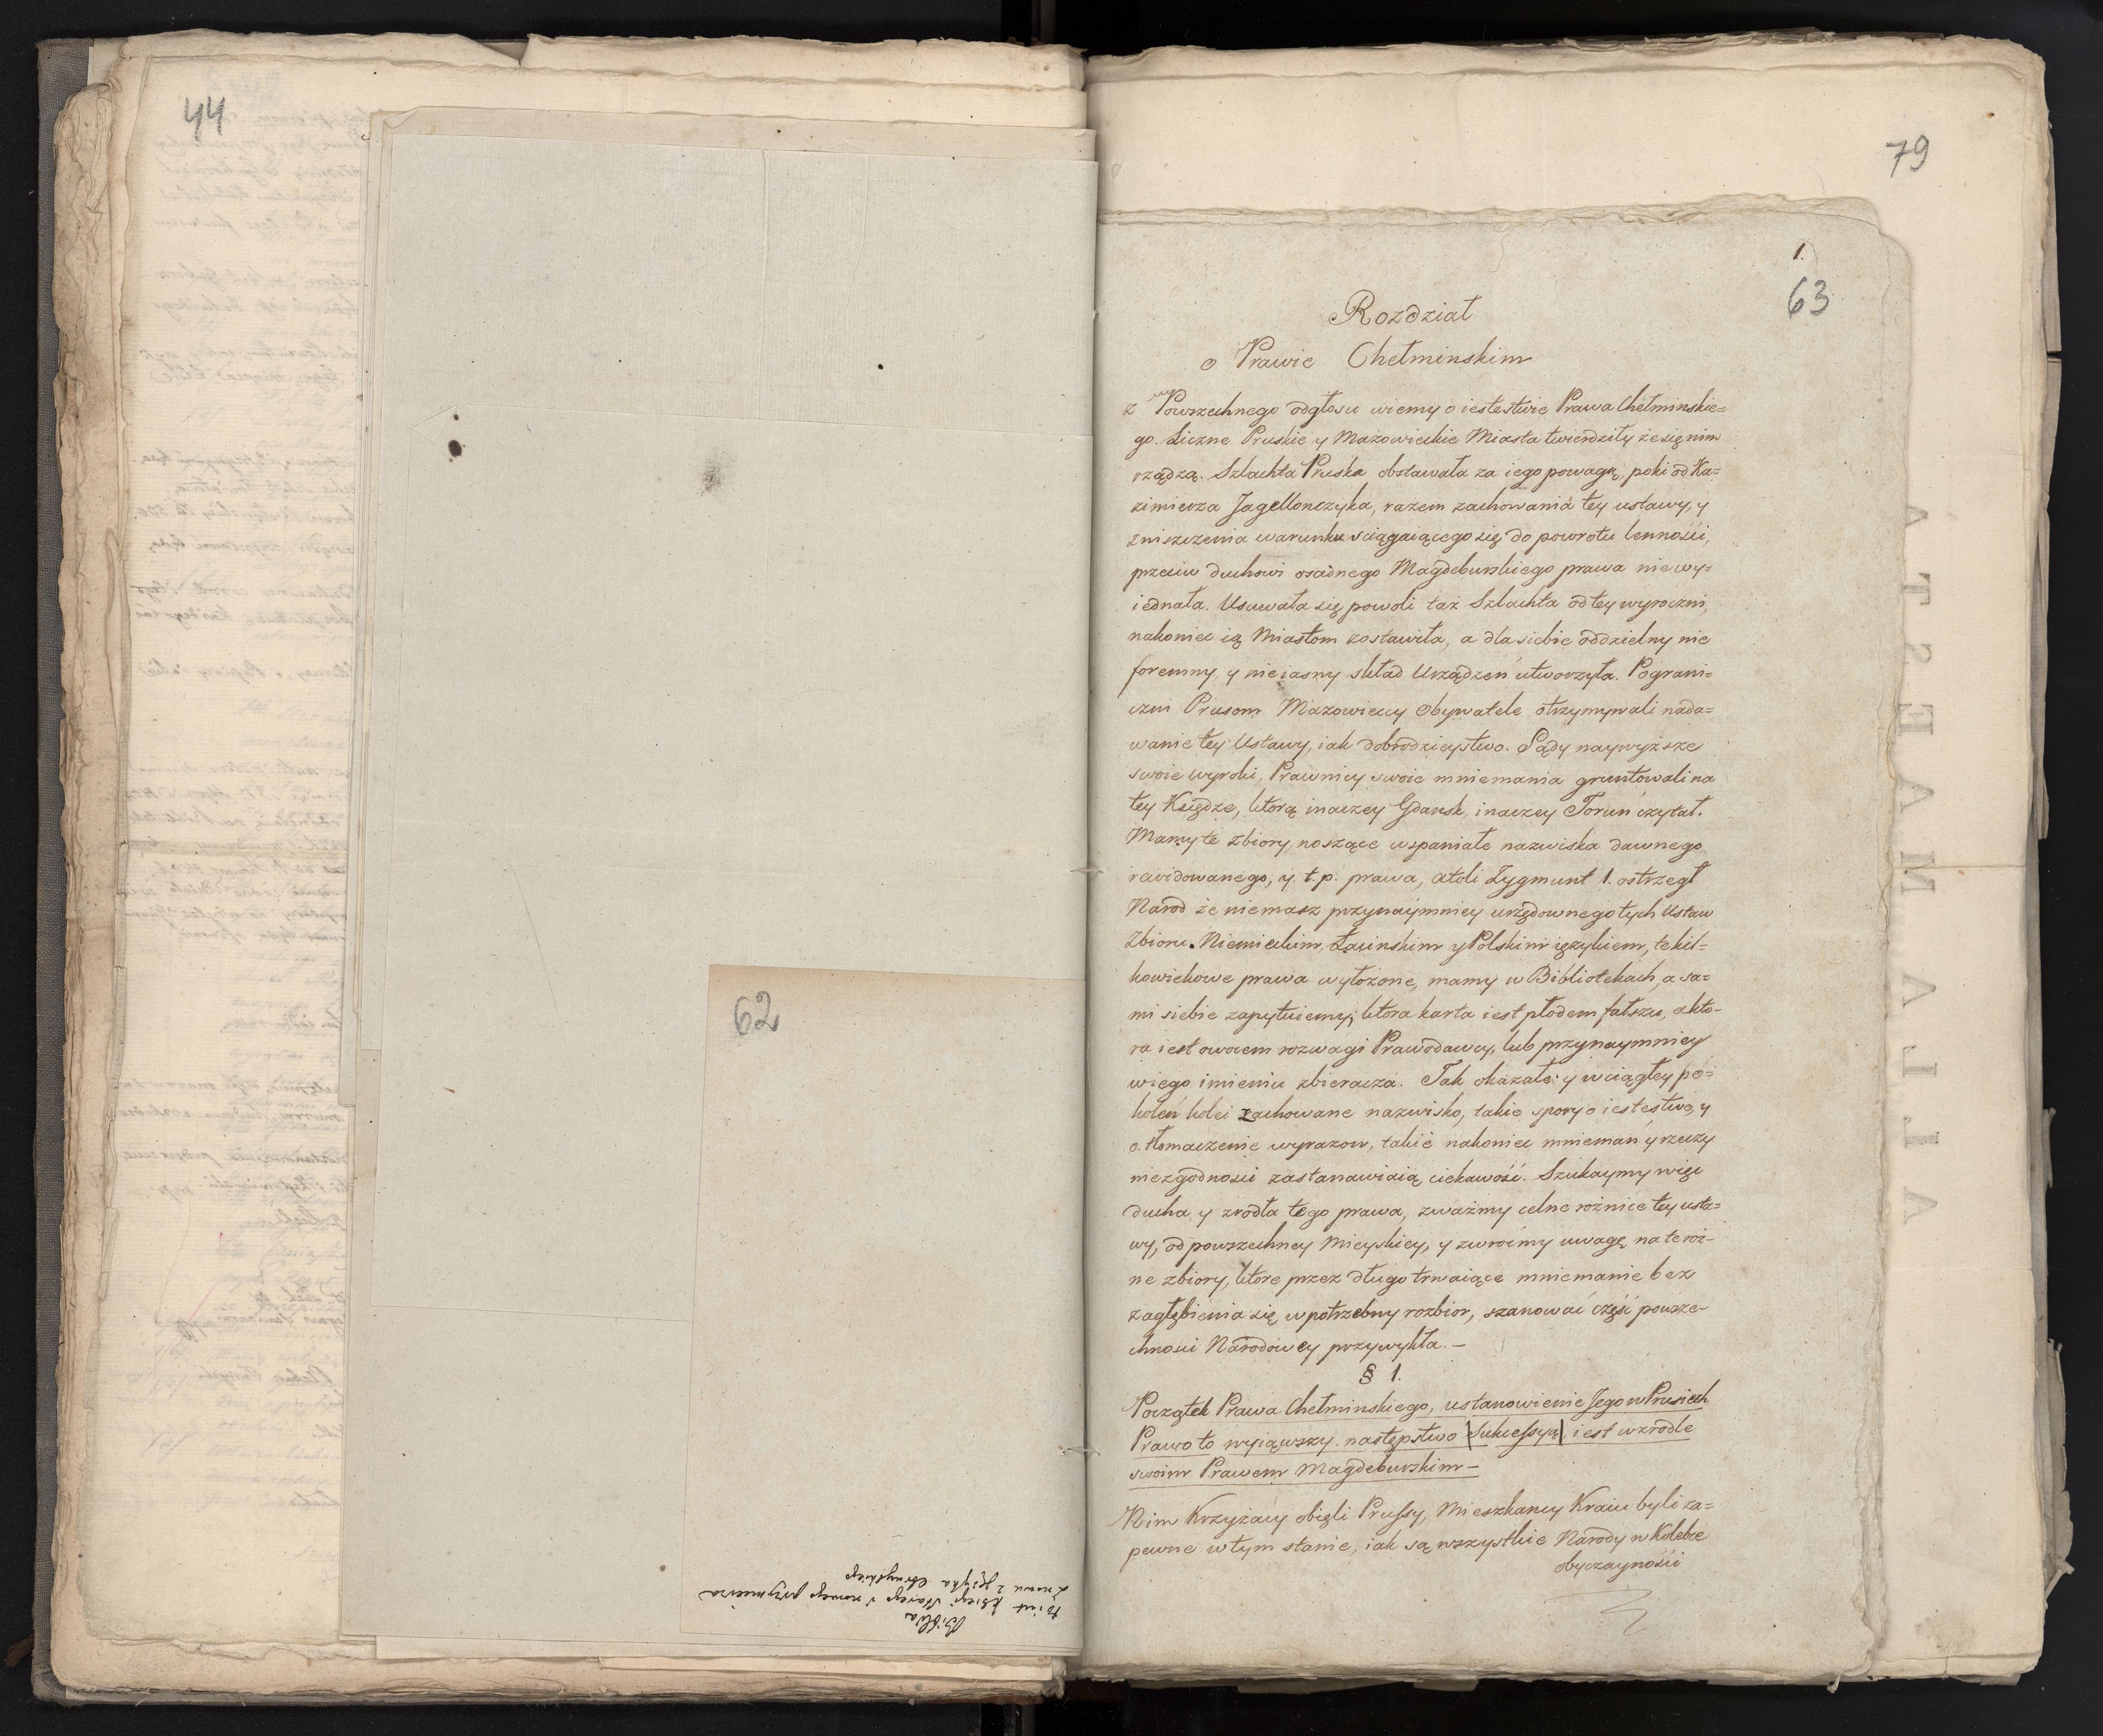 44
62
Biblia
to iest Xięgi Starego i nowego przymierza
z nowu z Języka Ebreyskiego
79
1.
63
Rozdział
o Prawie Chełminskim
z Powszechnego odgłosu wiemy o iestestwie Prawa Chełminskie=
go. Liczne Pruskie y Mazowieckie Miasta twierdziły że się nim
rządzą. Szlachta Pruska obstawała za iego powagą, poki od Ka=
zimierza Jagellonczyka, razem zachowania tey ustawy, y
zniszczenia warunku sciągaiącego się do powrotu lennośći,
przeciw duchowi osadnego Magdeburskiego prawa nie wy=
iednała. Usuwała się powoli taż Szlachta od tey wyroczni,
nakoniec ią Miastom zostawiła, a dla siebie oddzielny nie
foremny, y nie iasny skład Urządzeń utworzyła. Pograni=
czni Prusom Mazowieccy Obywatele otrzymywali nada=
wanie tey Ustawy, iak dobrodzieystwo. Sądy naywyższe
swoie wyroki, Prawnicy swoie mniemania gruntowali na
tey Księdze, ktorą inaczey Gdansk, inaczey Toruń czytał.
Mamy te zbiory, noszące wspaniałe nazwiska dawnego
rewidowanego, y. t. p. prawa, atoli Zygmunt 1. ostrzegł
Narod że niemasz przynaymniey urzędownego tych Ustaw
Zbioru. Niemieckim, Łacinskim y Polskim ięzykiem, te kil=
kowiekowe prawa wyłożone, mamy w Bibliotekach, a sa=
mi siebie zapytuiemy, ktora karta iest płodem fałszu, a kto-
ra iest owocem rozwagi Prawodawcy, lub przynaymniey
w iego imieniu zbieracza. Tak okazałe y w ciągłey po=
koleń kolei zachowane nazwisko, takie spory o iestestwo, y
o tłomaczenie wyrazow, takie nakoniec mnieman y rzeczy
niezgodnosci zastanawiaią ciekawość. Szukaymy więc
ducha y zrodła tego prawa, zważmy celne rożnice tey usta=
wy, od powszechney Mieyskiey, y zwroćmy uwagę na te roż-
ne zbiory, ktore przez długo trwaiące mniemanie bez
zagłębienia się w potrzebny rozbior, szanować część powsze-
chnosci Narodowey przywykła. —
§ 1.
Początek Prawa Chełminskiego, ustanowienie Jego w Prusiech
Prawo to wyiąwszy następstwo |Sukcessyą| iest w zrodle
swoim Prawem Magdeburskim —
Nim Krzyżacy obięli Prussy, Mieszkancy Kraiu byli za=
pewne w tym stanie, iak są wszystkie Narody w Kolebce
obyczaynośći